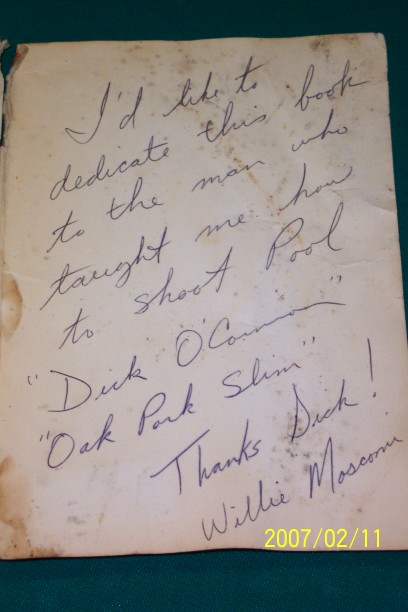 I'd like to
dedicate this book
to the man who
taught me how
to shoot Pool
"Dick O'Connor"
"Oak Park Slim"
Thanks Dick!
Willie Mosconi
2007/02/11